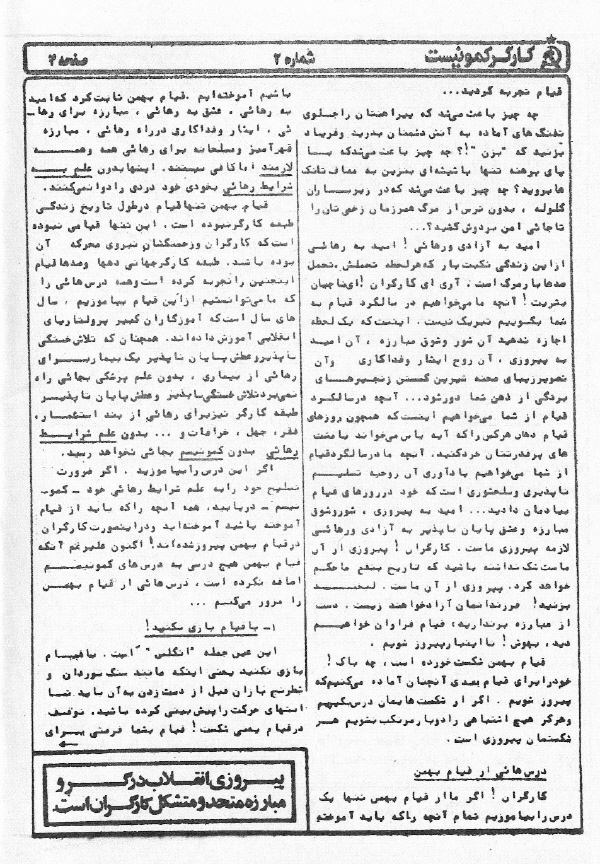 کارگر کمونیست
شماره ۲
صفحه ۴
قیام تجربه کردید...
چه چیز باعث می‌شد که پیراهنتان را جلوی
تفنگ‌های آماده به آتش دشمنان بدرید و فریاد
بزنید که "بزن"!؟ چه چیز باعث می‌شد که با
پای برهنه تنها با شیشه‌ای بنزین به مصاف تانک
ها بروید؟ چه چیز باعث می‌شد که در زیر باران
گلوله ، بدون ترس از مرگ همرزمان زخمی‌تان را
تا جائی امن بر دوش کشید؟...
امید به آزادی و رهائی ! امید به رهائی
از این زندگی نکبت‌بار که هر لحظه تحملش ، تحمل
صدها بار مرگ است . آری ای کارگران ! ای ناجیان
بشریت ! آنچه ما می‌خواهیم در سالگرد قیام به
شما بگوییم تبریک نیست . اینست که یک لحظه
اجازه ندهید آن شور و شوق مبارزه ، آن امید
به پیروزی ، آن روح ایثار و فداکاری و آن
تصویر زیبای صحنه شیرین گسستن زنجیرهای
بردگی از ذهن شما دور شود... آنچه در سالگرد
قیام از شما می‌خواهیم اینست که همچون روزهای
قیام دهان هر کس را که آیه یاس می‌خواند با مشت
های پرقدرتتان خرد کنید. آنچه ما در سالگرد قیام
از شما می‌خواهیم یادآوری آن روحیه تسلیم
ناپذیری و سلحشوری است که خود در روزهای قیام
بیادمان دادید... امید به پیروزی ، شور و شوق
مبارزه و عشق پایان ناپذیر به آزادی و رهائی
لازمه پیروزی ماست . کارگران ! پیروزی از آن
ماست شک نداشته باشید که تاریخ بنفع ما حکم
خواهد کرد. پیروزی از آن ماست . لبخند
بزنید! فرزندانمان آزاد خواهند زیست . دست
از مبارزه برندارید، قیام فراوان خواهیم
دید، بهوش ! تا اینبار پیروز شویم .
قیام بهمن شکست خورده است ، چه باک !
خود را برای قیام بعدی آنچنان آماده می‌کنیم که
پیروز شویم . اگر از شکست‌هایمان درس بگیریم
و هرگز هیچ اشتباهی را دوبار مرتکب نشویم هر
شکستمان پیروزی است .
درس‌هائی از قیام بهمن
کارگران ! اگر ما از قیام بهمن تنها یک
درس را بیاموزیم تمام آنچه را که باید آموخته
باشیم آموخته‌ایم . قیام بهمن ثابت کرد که امید
به رهائی ، عشق به رهائی ، مبارزه برای رها-
ئی ، ایثار و فداکاری در راه رهائی ، مبارزه
قهرآمیز و مسلحانه برای رهائی همه و همه
لازمند اما کافی نیستند. اینها بدون علم به
شرایط رهائی بخودی خود دردی را دوا نمی‌کنند.
قیام بهمن تنها قیام در طول تاریخ زندگی
طبقه کارگر نبوده است . این تنها قیامی نبوده
است که کارگران و زحمتکشان نیروی محرکه آن
بوده باشند. طبقه کارگر جهانی دهها و صدها قیام
اینچنین را تجربه کرده است و همه درس‌هائی را
که ما می‌توانستیم از این قیام بیاموزیم ، سال
های سال است که آموزگاران کبیر پرولتاریای
انقلابی آموزش داده‌اند. همچنان که تلاش خستگی
ناپذیر و عطش پایان ناپذیر یک بیمار برای
رهائی از بیماری ، بدون علم پزشکی بجائی راه
نمی‌برد تلاش خستگی ناپذیر و عطش پایان ناپذیر
طبقه کارگر نیز برای رهائی از بند استثمار،
فقر، جهل ، خرافات و ... بدون علم شرایط
رهائی بدون کمونیسم بجائی نخواهد رسید.
اگر این درس را بیاموزید ، اگر ضرورت
تسلیح خود را به علم شرایط رهائی خود - کمو-
نیسم - دریابید، همه آنچه را که باید از قیام
آموخته باشید آموخته‌اید و در اینصورت کارگران
در قیام بهمن پیروز شده‌اند! اکنون علیرغم آنکه
قیام بهمن هیچ درسی به درس‌های کمونیسم
اضافه نکرده است ، درس‌هائی از قیام بهمن
را مرور می‌کنیم ...
۱- با قیام بازی نکنید!
این عین جمله "انگلس" است . با قیام
بازی نکنید یعنی اینکه مانند سنگ‌نوردان و
شطرنج بازان قبل از دست زدن به آن باید تا
انتهای حرکت را پیش‌بینی کرده باشید. توقف
در قیام یعنی شکست ! قیام بشما فرصتی برای
پیروزی انقلاب در گرو
مبارزه متحد و متشکل کارگران است.